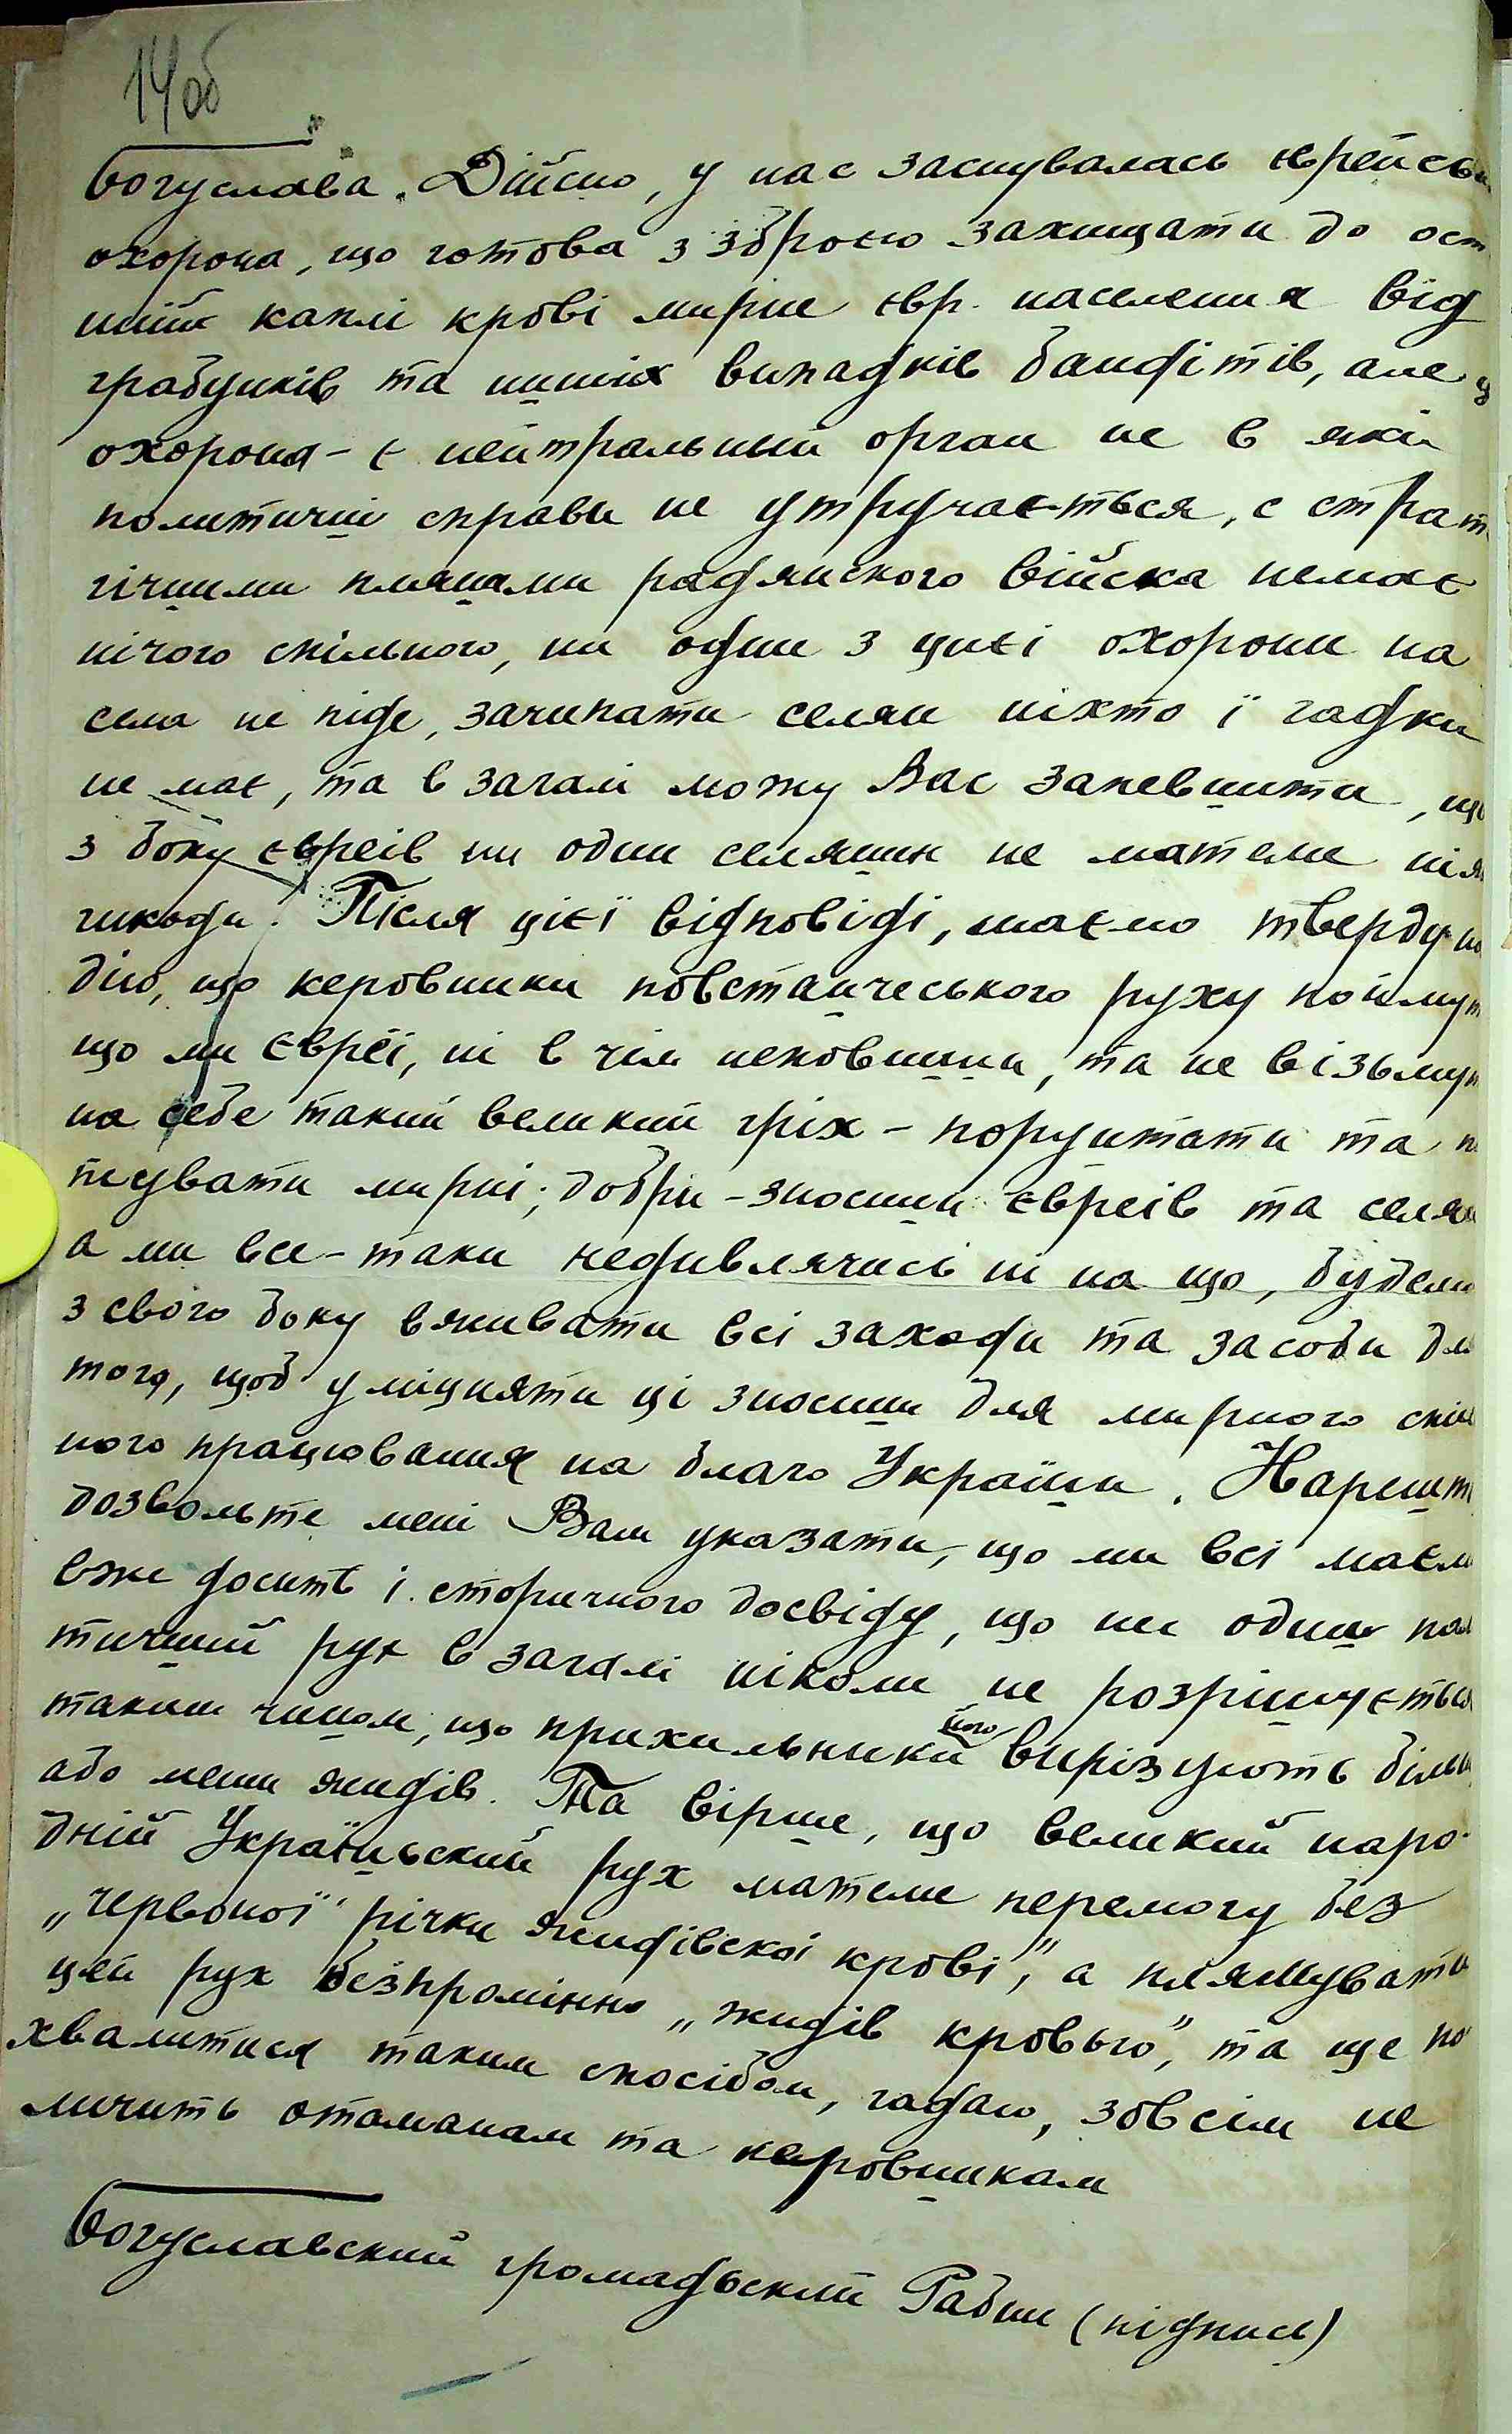 14об
Богуслава. Дійсно, у нас заснувалась єврейсь
охорона, що готова з зброєю захищати до ост
нній каплі крові мирне євр. населення від
грабунків та инших випадків бандітів, але ц
охорона – є нейтральний орган не в які
политичні справи не утручається, с страт
гічними плянами радянского війска немає
нічого спільного, ни один з циєі охорони на
села не піде, зачипати селян ніхто ї гадки
не має, та в загалі можу Вас запевнити, що
з боку євреів ни один селянин не матеме нія
шкоди. Після цієї відповіді, маємо тверду на
дію, що керовники повстанчеського руху поймут
що ми Євреї, ні в чім неповинни, та не візьмут
на себе такий великий гріх – поруштати та п
псувати мирні; добри – зносини євреів та селян
а ми все-таки недивлячись ні на що, будемо
з свого боку вживати всі заходи та засоби дл
того, щоб уміцняти ці зносини для мирного спіл
ного працювання на благо Украіни. Нарешт
дозвольте мені Вам указати, що ми всі маєм
вже досить і.сторичного досвіду, що ни один пол
тичний рух в загалі ніколи не розрішується
таким чином, що прихильники його вирізують більш
або менш жидів. Та вірше, що великий наро-
дній Украіньский рух матеме перемогу без
„червоної" річки жидівскоі крові", а плямувати
цей рух безпромінно „жидів кровью", та ще по
хвалитися таким способом, гадаю, зовсім не
личить отоманам та керовникам
Богуславский громадьский Рабин (підпись)